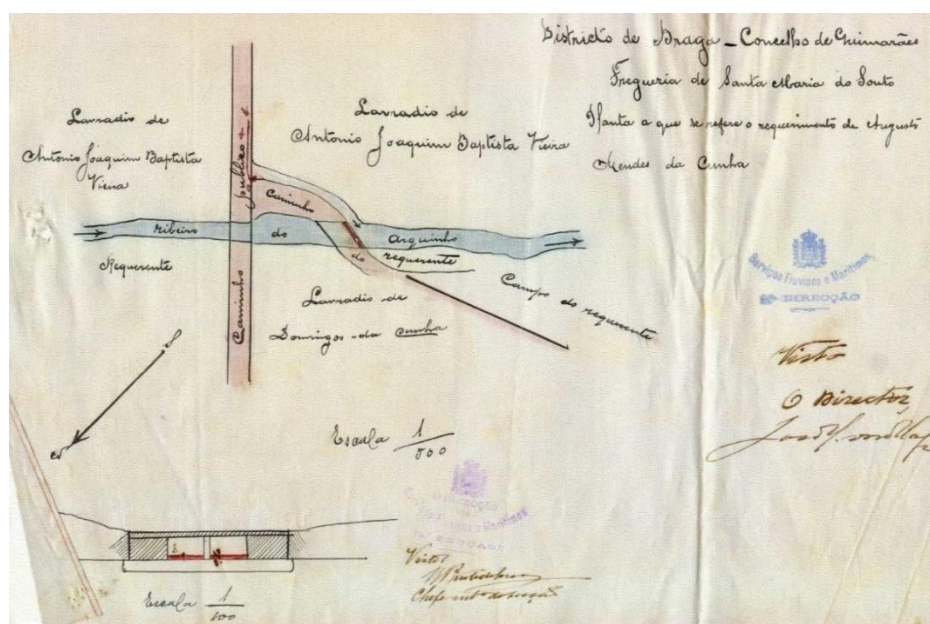 Districto de Braga - Concelho de Guimarães
Freguezia de Santa Maria do Souto
Planta a que se refere o requerimento de Augusto
Mendes da Cunha
Lavradio de
Antonio Joaquim Baptista
Vieira
Lavradio de
Antonio Joaquim Baptista Vieira
publico
Caminho
Caminho
ribeiro do Arquinho
do requerente
Requerente
Lavradio de
Domingos da Cunha
Campo do requerente
Serviços Fluviaes e Maritimos
DIRECÇÃO
Visto
O Director,
Escala 1/500
Visto
Chefe
Escala 1/100